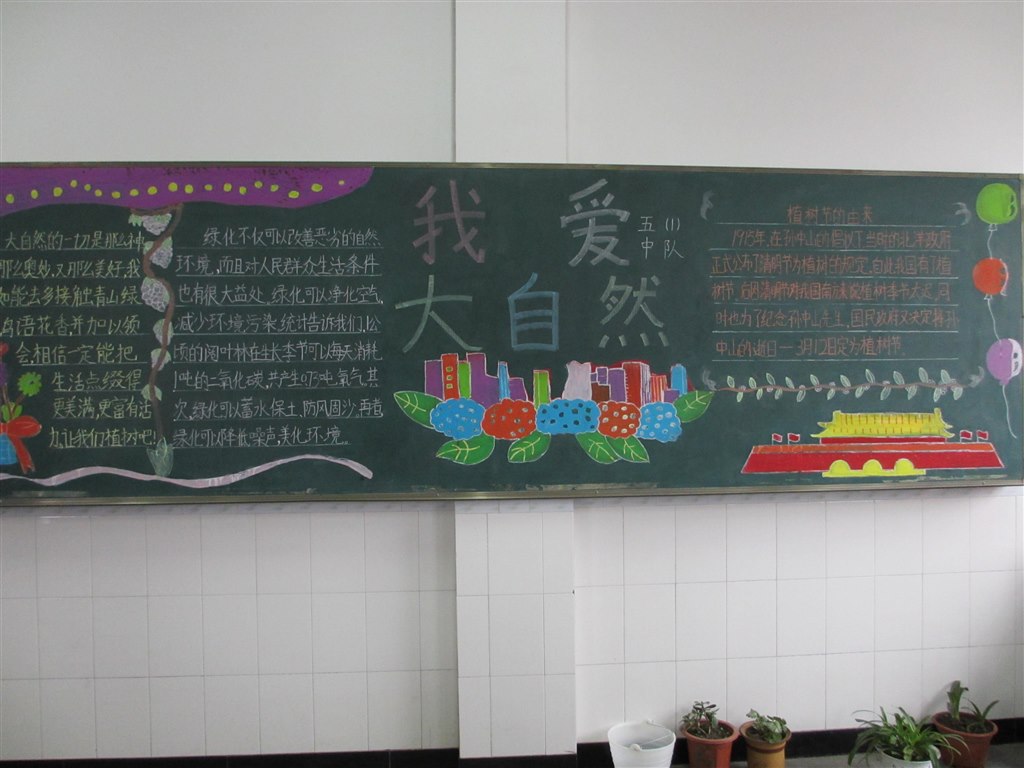 大自然的一切是那么神
那么奥妙,又那么美好,我
如能去多接触青山绿
鸟语花香,并加以领
会相信一定能把
生活点缀得
更美满,更富有活
力,让我们植树吧!
绿化不仅可以改善恶劣的自然
环境,而且对人民群众生活条件
也有很大益处,绿化可以净化空气,
减少环境污染,统计告诉我们,公
顷的阔叶林在生长季节可以每天消耗
1吨的二氧化碳,共产生0.75吨氧气,其
次,绿化可以蓄水保土,防风固沙,再者
绿化可以降低噪声,美化环境。
我 爱
大自然
五(1)
中队
植树节的由来
1915年,在孙中山的倡议下当时的北洋政府
正式公布了清明节为植树的规定,自此我国有了植
树节
中山的逝日—3月12日定为植树节